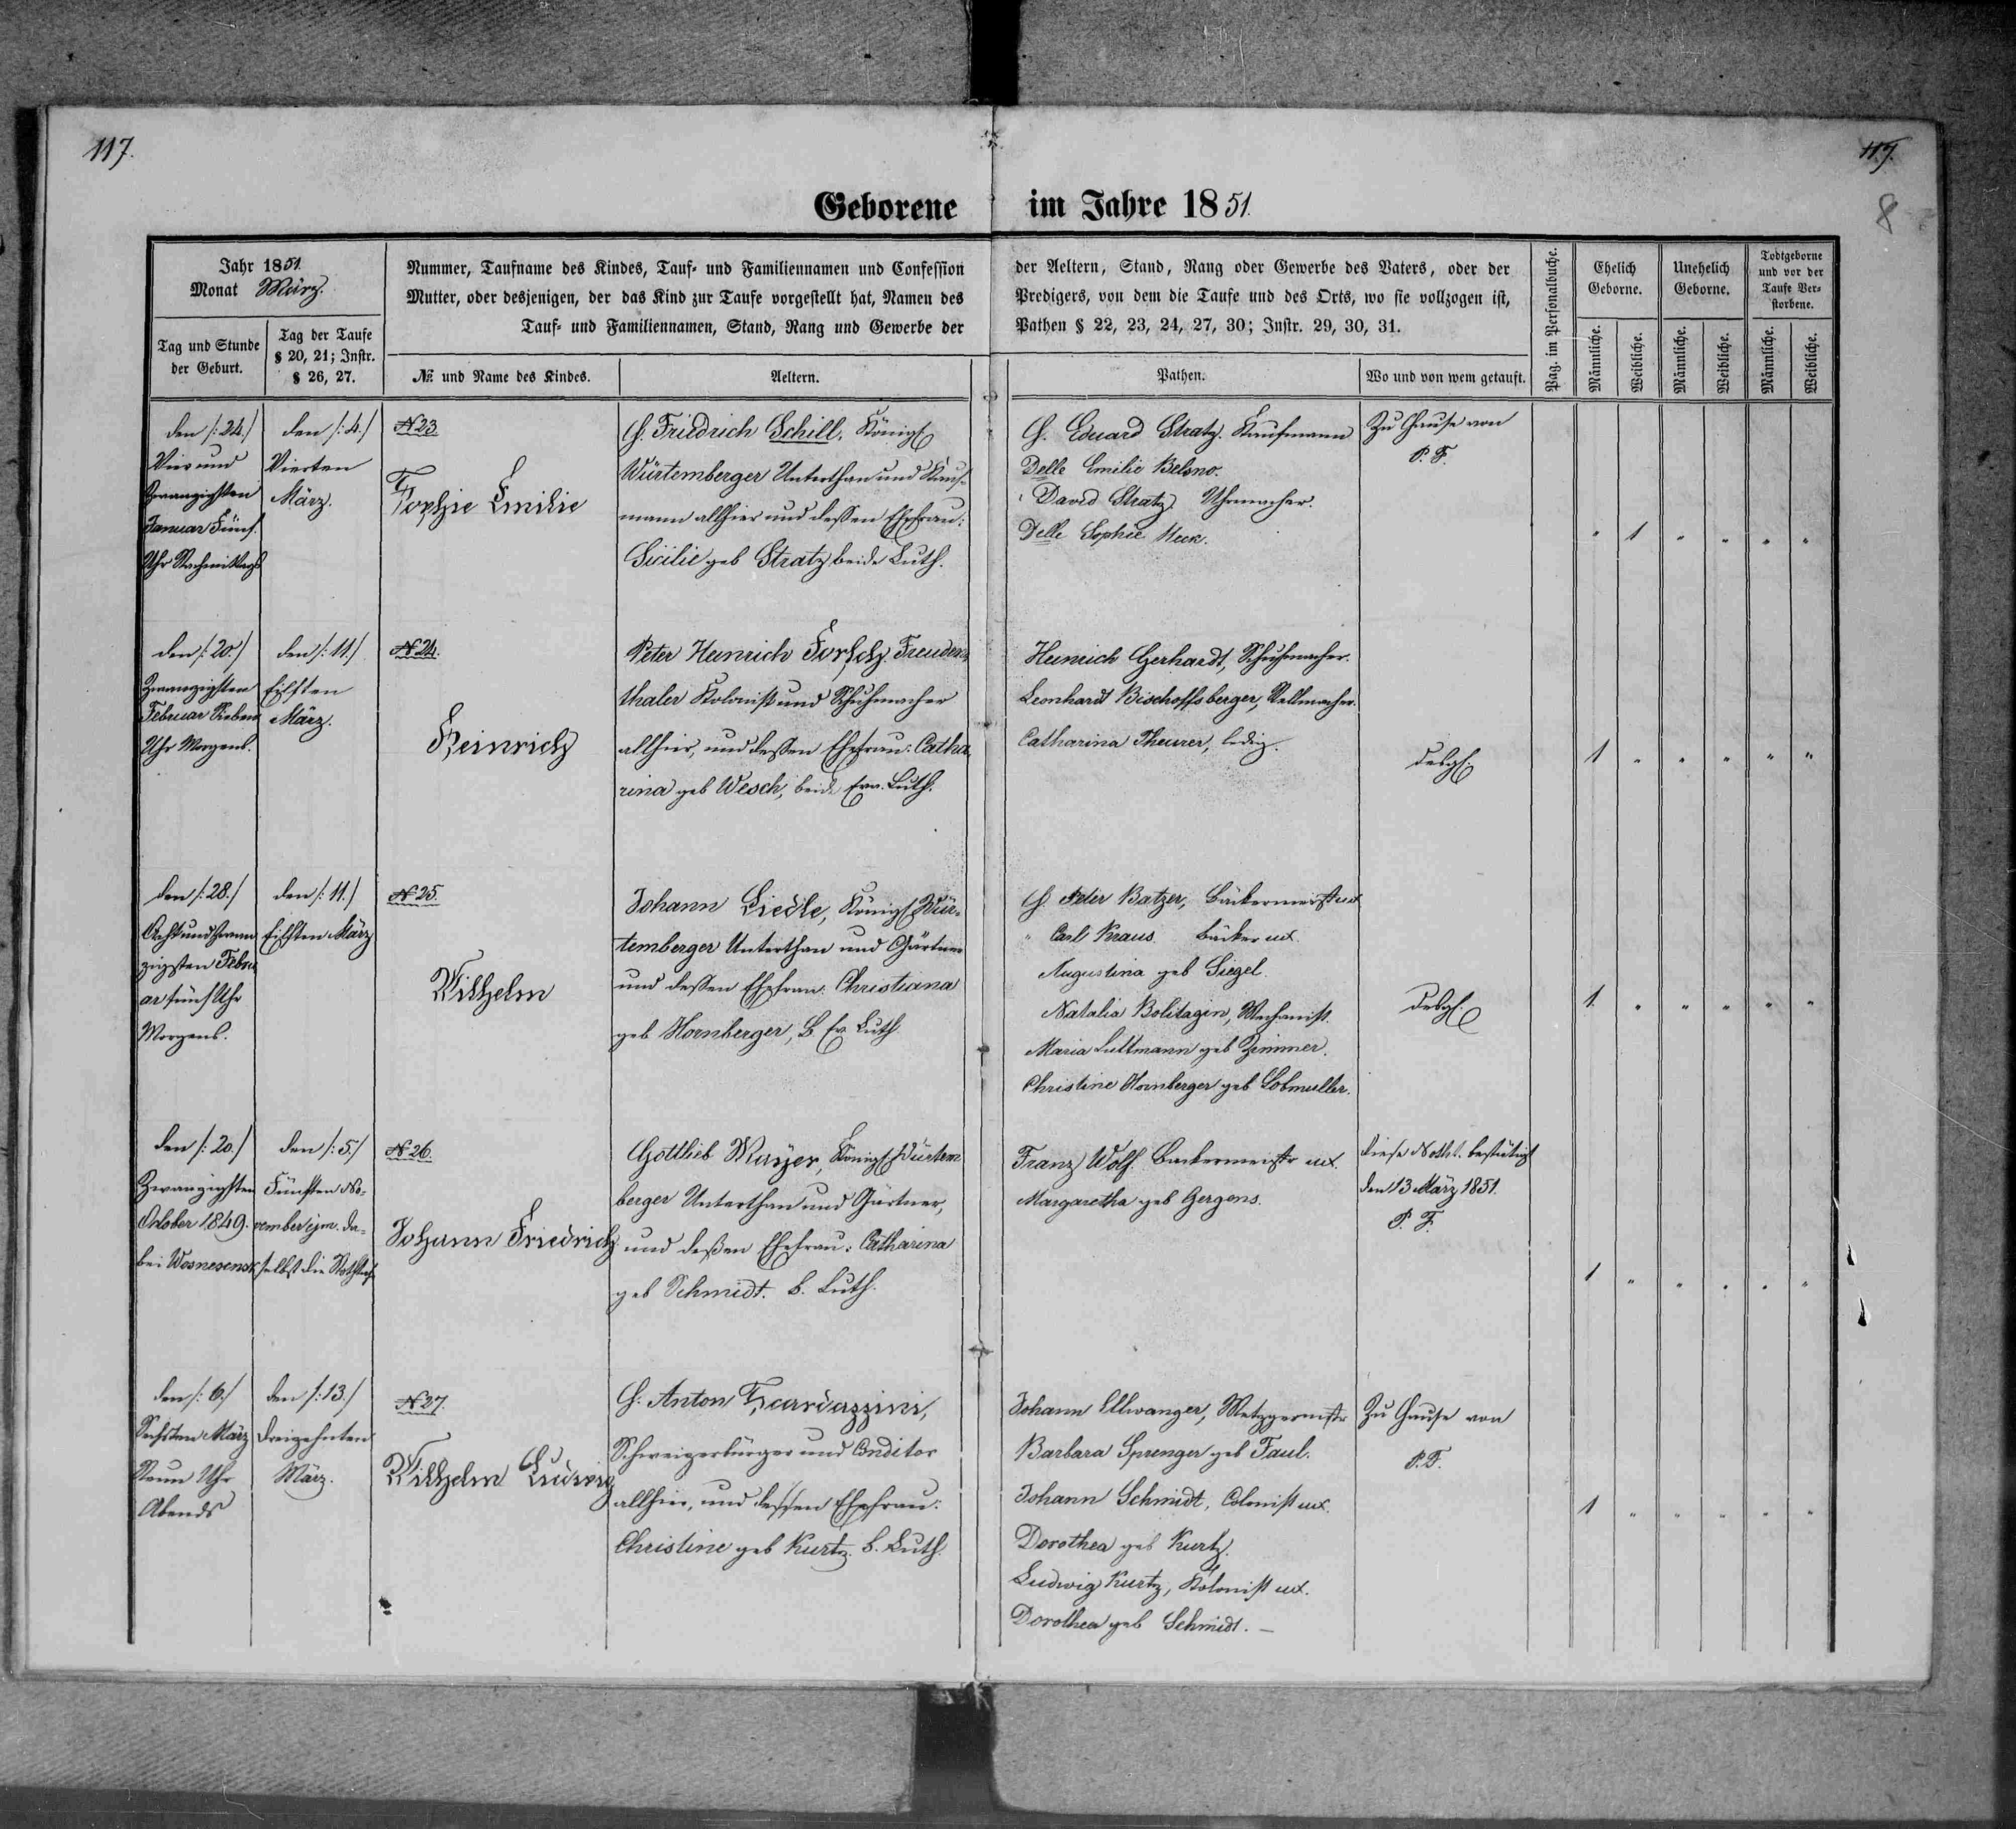 117.
117.
8
Geborene im Jahre 1851.
Jahr 1851.
Monat März.
Tag und Stunde der Geburt.
Tag der Taufe § 20, 21; Instr. § 26, 27.
Nummer, Taufname des Kindes, Tauf- und Familiennamen und Confession der Aeltern, Stand, Rang oder Gewerbe des Vaters, oder der
Mutter, oder desjenigen, der das Kind zur Taufe vorgestellt hat, Namen des Predigers, von dem die Taufe und des Orts, wo sie vollzogen ist,
Tauf- und Familiennamen, Stand, Rang und Gewerbe der Pathen § 22, 23, 24, 27, 30; Instr. 29, 30, 31.
№ und Name des Kindes.
Aeltern.
Pathen.
Wo und von wem getauft.
Pag. im Personalbuche.
Ehelich Geborne.
Unehelich Geborne.
Todtgeborne und vor der Taufe Verstorbene.
Männliche.
Weibliche.
Männliche.
Weibliche.
Männliche.
Weibliche.
den /:24./
Vier und
Zwanzigsten
Januar Fünf
Uhr Nachmittags
den /:4./
Vierten
März.
N 23
Sophie Emilie
H. Friedrich Schill, Königl
Würtemberger Unterthan und Kauf-
mann allhier und dessen Ehefrau:
Cicilie geb Stratz beide Luth.
H. Eduard Stratz. Kaufmann
Delle Emilie Belono.
David Stratz Uhrmacher.
Delle Sophie
Zu Hause von
P. F.
" 1 " " " "
den /:20./
Zwanzigsten
Februar Sieben
Uhr Morgens.
den /:11./
Eilften
März.
N 24.
Heinrich
Peter Heinrich Forsch Freuden-
thaler Kolonist und Schuhmacher
allhier, und dessen Ehefrau: Catha
rina geb Wesch, beide Evn. Luth.
Heinrich Gerhardt, Schuhmacher.
Leonhardt Bischoffsberger, Stellmacher.
Catharina Theurer, ledig.
desgl.
1 " " " " "
den /:28./
Acht und zwan
zigsten Febru
ar fünf Uhr
Morgens.
den /:11./
Eilften März
N 25.
Wilhelm
Johann Liedle, Königl Wür-
temberger Unterthan und Gärtner
und dessen Ehefrau: Christiana
geb Hornberger, B Ev Luth
H. Peter Batzer, Bäckermeister ux
" Carl Kraus Bäcker ux.
Augustina geb Siegel.
Natalia Bolitagin, Mechanist.
Maria Luttmann geb Zimmer.
Christine Hornberger geb Lobmuller.
desgl.
1. " " " " "
den /:20./
Zwanzigsten
October 1849.
bei Wosnesensk
den /:5./
Fünften No-
vember ejm. da-
selbst die Nothtauf
N 26.
Johann Friedrich
Gottlieb Mayer, Königl Würtem
berger Unterthan und Gärtner,
und deßen Ehefrau: Catharina
geb Schmidt. B. Luth.
Franz Wolf Beckermeistr ux.
Margaretha geb Gergens.
diese Notht. bestätigt
den 13 März 1851.
P. F.
1 " " " " "
den /:6./
Sechsten März
Neun Uhr
Abends
den /:13./
Dreizehnten
März.
N 27.
Wilhelm Ludwig
H. Anton Scardazzini,
Schweizerbürger und Conditor
allhier, und dessen Ehefrau:
Christine geb Kurtz. B. Luth.
Johann Ellwanger, Metzgermstr
Barbara Sprenger geb Faul.
Johann Schmidt, Colonist ux.
Dorothea geb Kurtz.
Ludwig Kurtz, Kolonist ux.
Dorothea geb Schmidt. —
Zu Hause von
P. F.
1 " " " " "